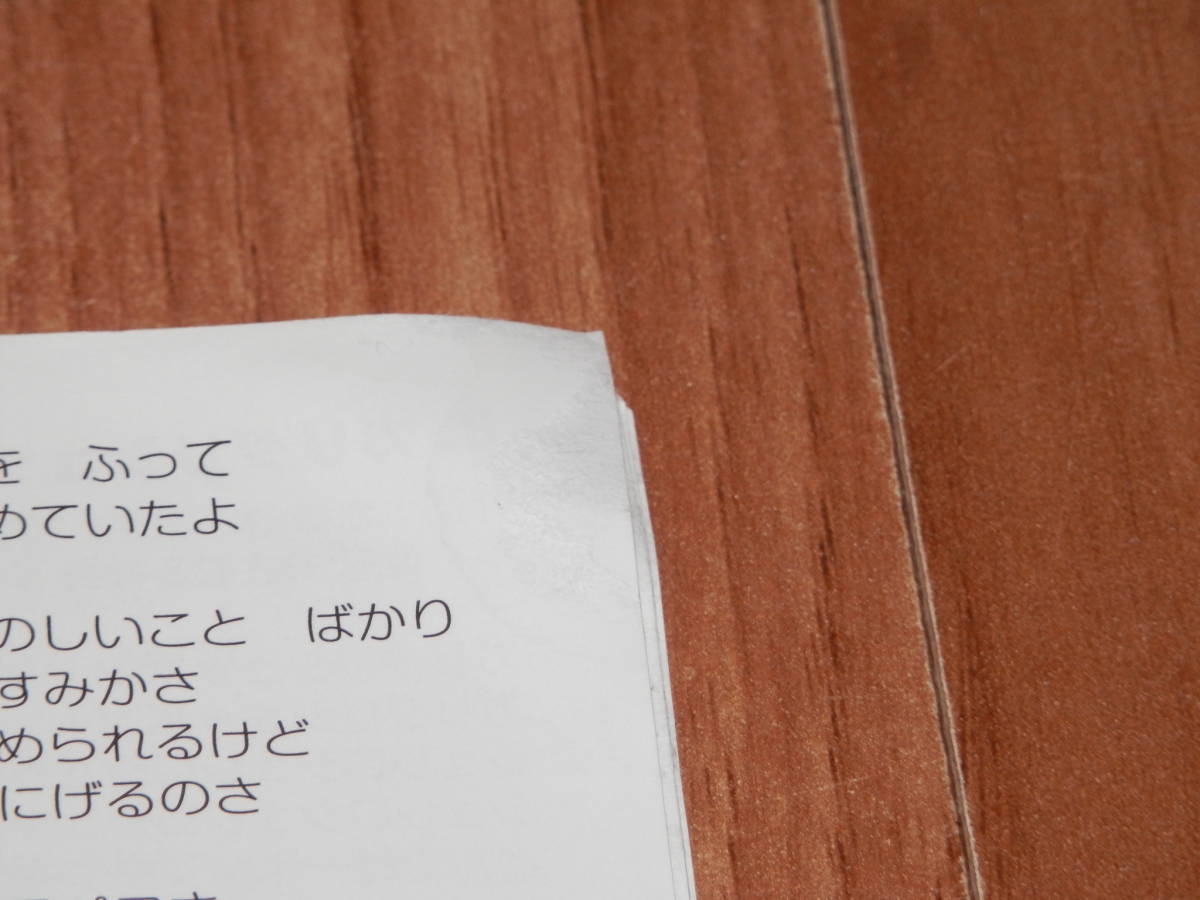 を　ふって
めていたよ
のしいこと　ばかり
すみかさ
められるけど
にげるのさ